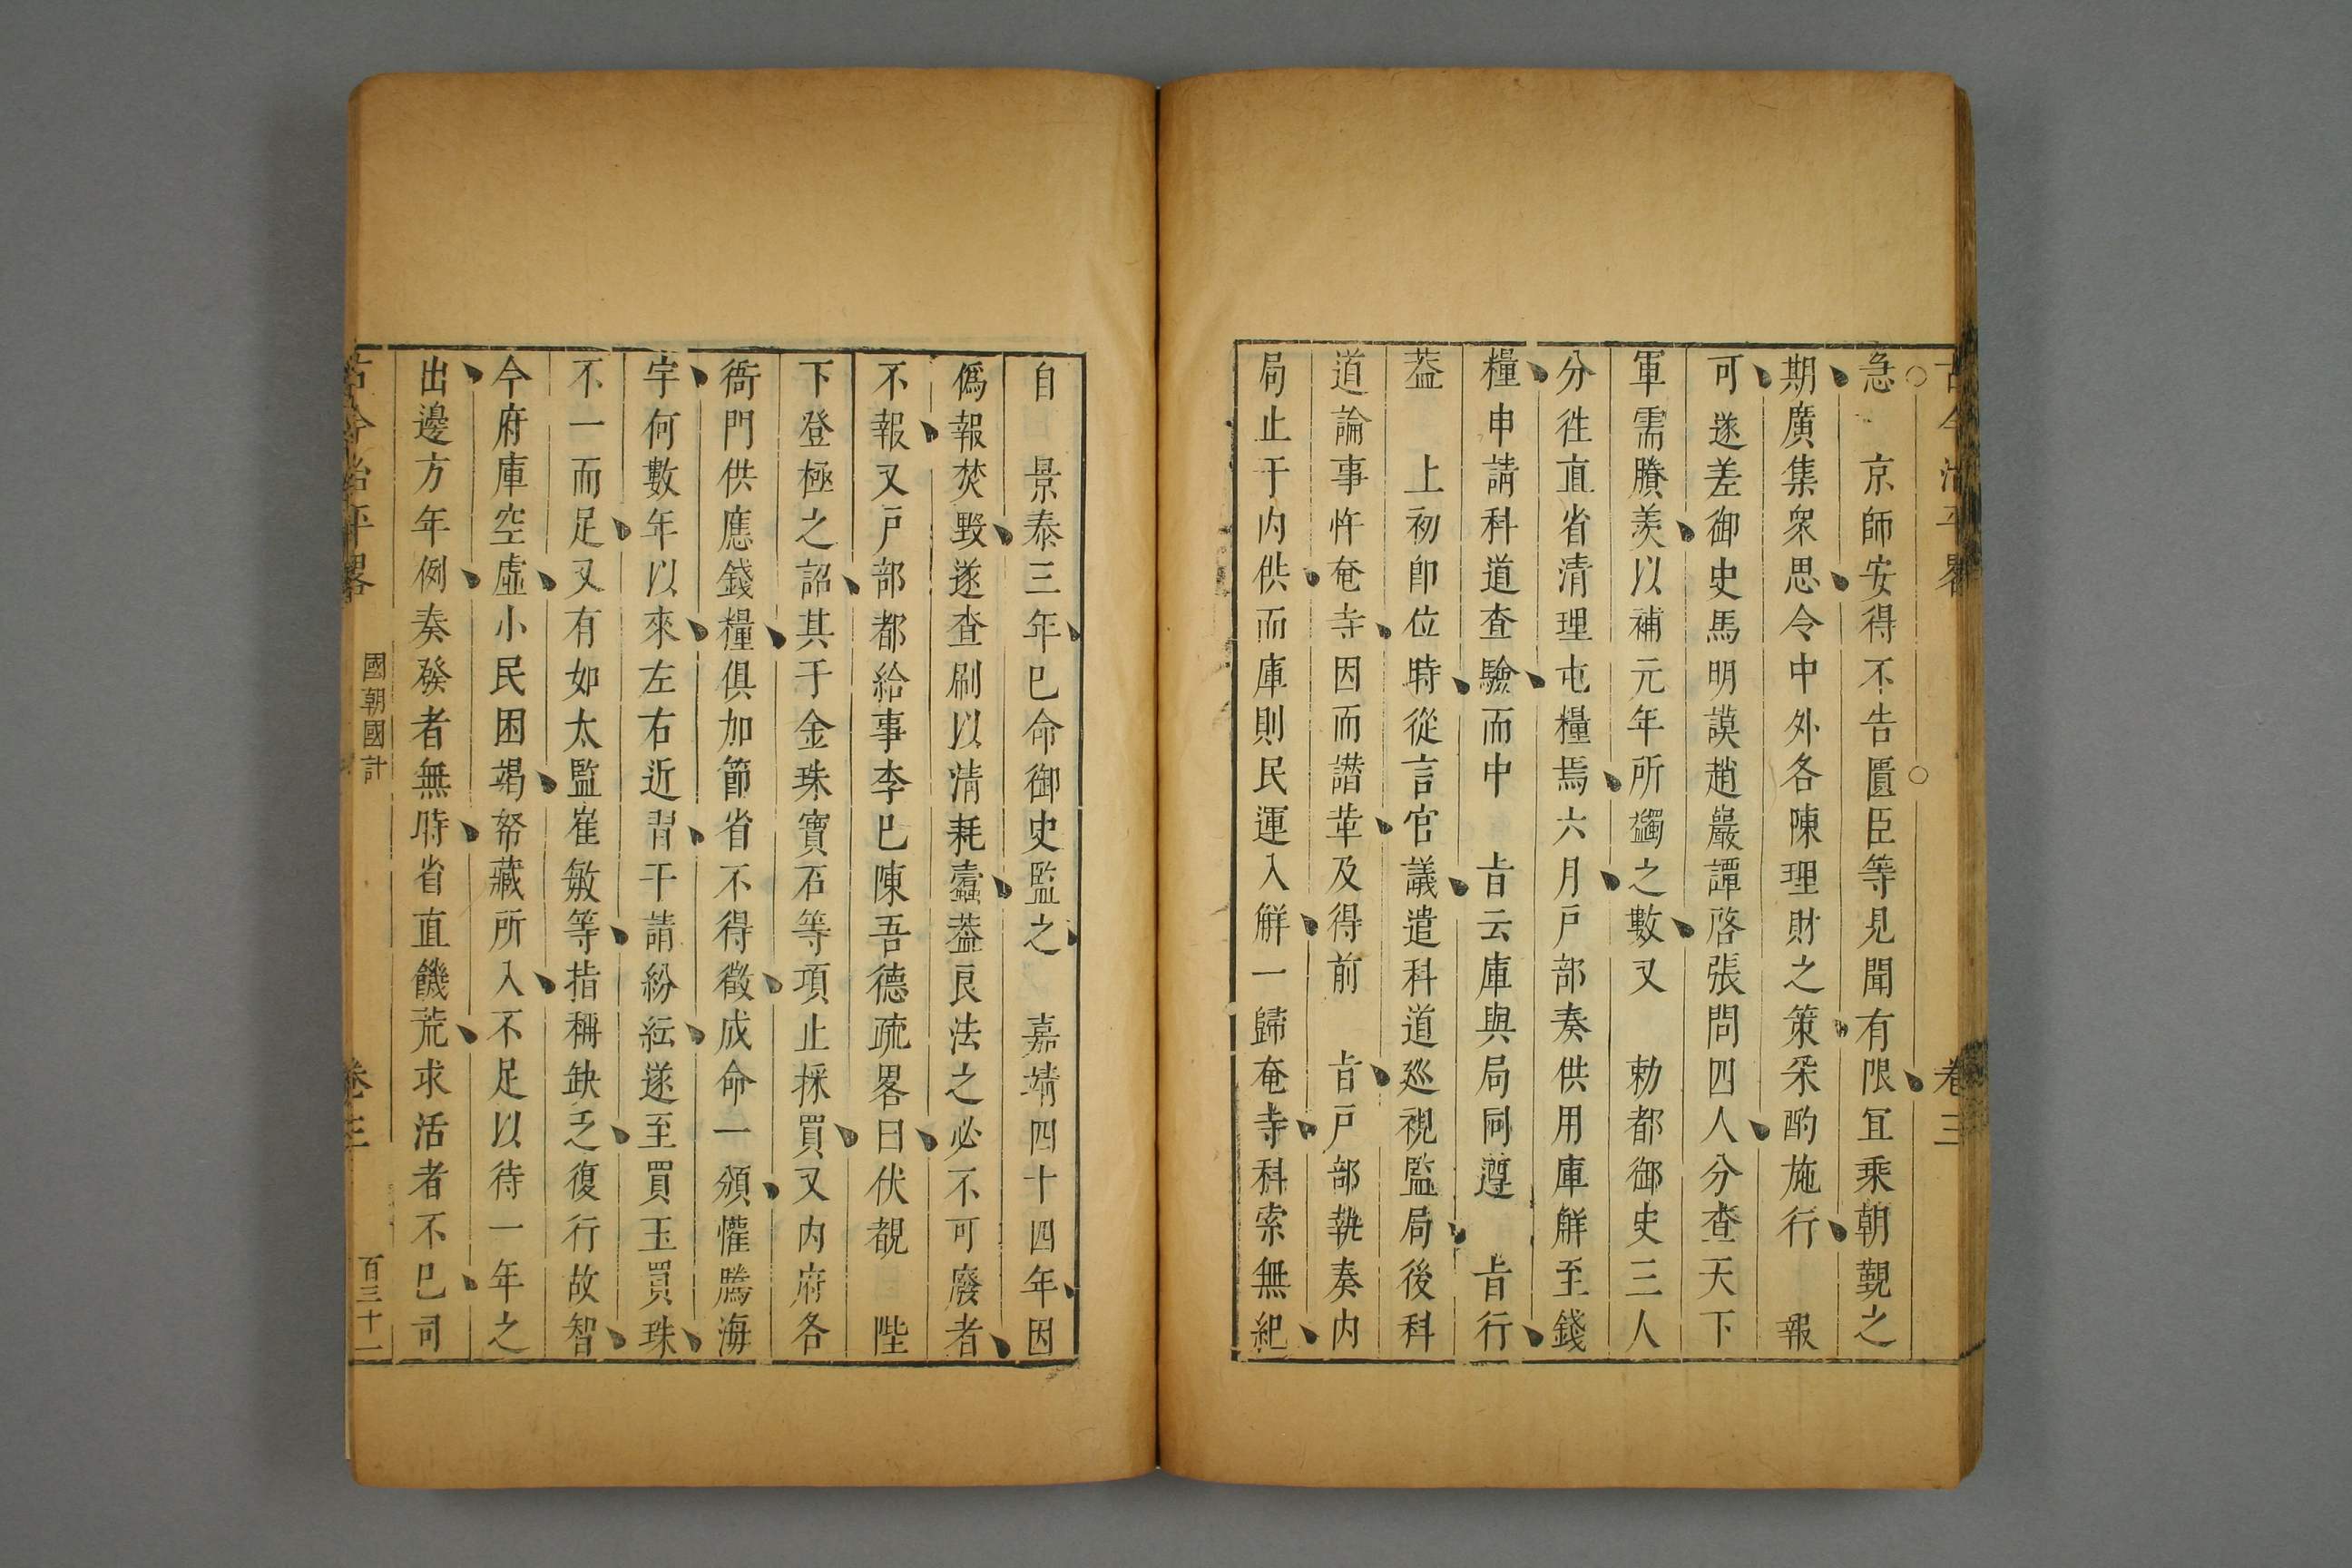 古今治平畧 卷三
急 京師安得不告匱臣等見聞有限冝乘朝覲之
期廣集衆思令中外各陳理財之策采酌施行 報
可遂差御史馬明謨趙巖譚啓張問四人分查天下
軍需賸羨以補元年所蠲之數又 勅都御史三人
分徃直省清理屯糧焉六月戸部奏供用庫觧至錢
糧申請科道查驗而中 㫖云庫與局同遵 㫖行
葢 上初卽位時從言官議遣科道廵視監局後科
道論事忤奄寺因而譖革及得前 㫖戸部執奏内
局止于内供而庫則民運入觧一歸奄寺科索無紀
自 景泰三年已命御史監之 嘉靖四十四年因
僞報焚毁遂查刷以清耗蠧葢良法之必不可廢者
不報又戸部都給事李已陳吾德疏畧曰伏覩 陛
下登極之詔其于金珠寶石等項止採買又内府各
衙門供應錢糧俱加節省不得徵成命一頒懽騰海
宇何數年以來左右近習干請紛紜遂至買玉買珠
不一而足又有如太監崔敏等指稱缺乏復行故智
今府庫空虛小民困竭帑藏所入不足以待一年之
出邊方年例奏發者無時省直饑荒求活者不已司
古今治平畧 國朝國計 卷三 百三十一